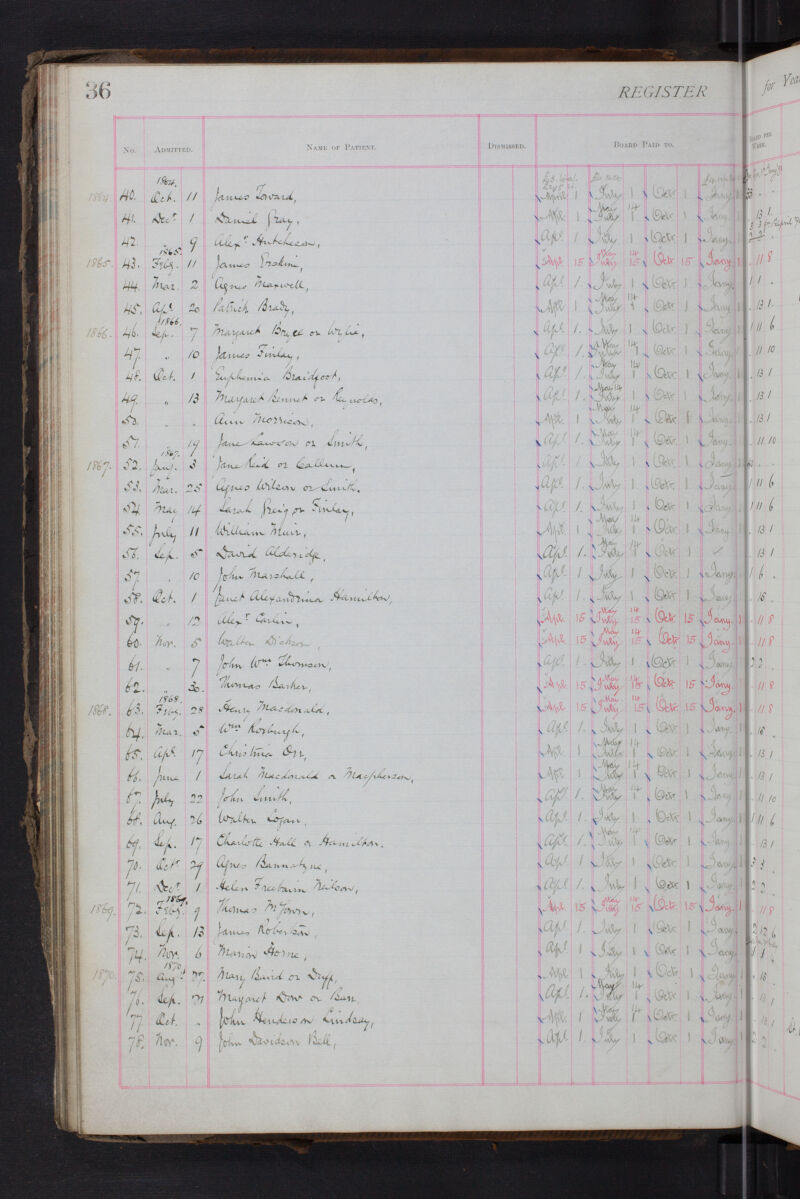 36
REGISTER
for Year
No. ADMITTED. NAME OF PATIENT. DISMISSED. BOARD PAID TO. BOARD PER WEEK.
1864.
1864. 40. Oct. 11 James April 1 July 1 Octr 1 Jany 1
41. Decr 1 Daniel Gray, Apl 1 July 1 May 14 Octr 1 13 1
42. " 9 Alexr Hutcheson, Apl 1 July 1 Octr 1 Jany
1865.
1865. 43. Feby. 11 James Erskine, Apl 15 July 15 May 14 Octr 15 Jany 1 11 8
44. Mar. 2 Agnes Maxwell, Apl 1. July 1 Octr 1 Jany 1 1
45. Apl 20 Patrick Brady, Apl 1 July 1 May 14 Octr 1 Jany 13 1
1866.
1866. 46. Sep. 7 Margaret Boyce or Wylie, Apl 1. July 1 Octr 1 Jany 1 1 11 6
47. " 10 James Finlay, Apl 1. July 1 May 14 Octr 1 Jany 11 10
48. Oct. 1 Euphemia Braidfoot, Apl 1. July 1 May 14 Octr 1 Jany 13 1
49. " 13 Margaret Bennet or Reynolds, Apl 1. July 1 May 14 Octr 1 Jany 13 1
50. . . Ann Morrison, Apl 1. July 1 May 14 Octr 1 Jany 13 1
51. 19 Jane Lawson or Smith, Apl 1. July 1 May 14 Octr 1 Jany 11 10
1867.
1867. 52. Jany. 3 Jane Reid or Callum, Apl 1. July 1 Octr 1 Jany
53. Mar. 25 Agnes Wilson or Smith, Apl 1. July 1 Octr 1 Jany 1 11 6
54. May 14 Sarah Greig or Finlay, Apl 1. July 1 Octr 1 Jany 1 11 6
55. July 11 William Muir, Apl 1 July 1 May 14 Octr 1 Jany 13 1
56. Sep. 5 David Alderidge, Apl 1. July 1 May 14 Octr 1 13 1
57. . 10 John Marshall, Apl 1 July 1 Octr 1 Jany 1 6 .
58. Oct. 1 Janet Alexandrina Hamilton, Apl 1. July 1 Octr 1 Jany 15 .
59. " 12 Alexr Apl 15 July 15 May 14 Octr 15 Jany 1 11 8
60. Nov. 5 Walter Dickson, Apl 15 July 15 May 14 Octr 15 Jany 1 11 8
61. " 7 John Wm Thomson, Apl 1. July 1 Octr 1 Jany 2 2 .
62. " 30. Thomas Barker, Apl 15 July 15 May 14 Octr 15 Jany 11 8
1868.
1868. 63. Feby. 28 Henry Macdonald, Apl 15 July 15 May 14 Octr 15 Jany 1 11 8
64. Mar. 5 Wm Roxburgh, Apl 1. July 1 Octr 1 Jany
65. Apl. 17 Christina Orr, Apl 1 July 1 May 14 Octr 1 Jany 13 1
66. June 1 Sarah Macdonald or Macpherson, Apl 1 July 1 May 14 Octr 1 Jany 13 1
67. July 22 John Smith, Apl 1. July 1 May 14 Octr 1 Jany 11 10
68. Aug. 26 Walter Logan, Apl 1. July 1 Octr 1 Jany 1 11 6
69. Sep. 17 Charlotte Hall or Hamilton. Apl 1. July 1 May 14 Octr 1 Jany 13 1
70. Octr 29 Agnes Bannatyne, Apl 1 July 1 Octr 1 Jany 3 3
71. Decr 1 Helen Freebairn Watson, Apl 1. July 1 Octr 1 Jany 2 2 .
1869.
1869. 72. Feby. 9 Thomas McGowan, Apl 15 July 15 May 14 Octr 15 Jany. 1 11 8
73. Sep. 13 James Robertson, Apl 1. July 1 Octr 1 Jany 2 12 6
74. Nov. 6 Marion Horne, Apl 1 July 1 Octr 1 Jany
1870
1870. 75. Aug. 27. Mary Baird or Apl 1 July 1 Octr 1 Jany
76. Sep. 21 Margaret Dow or Apl 1. July 1 May 14 Octr 1 Jany 13 1
77. Oct. . John Henderson Lindsay, Apl 1 July 1 May 14 Octr 1 Jany 13 1
78. Nov. 9 John Davidson Bell, Apl 1. July 1 Octr 1 Jany 2 2 .